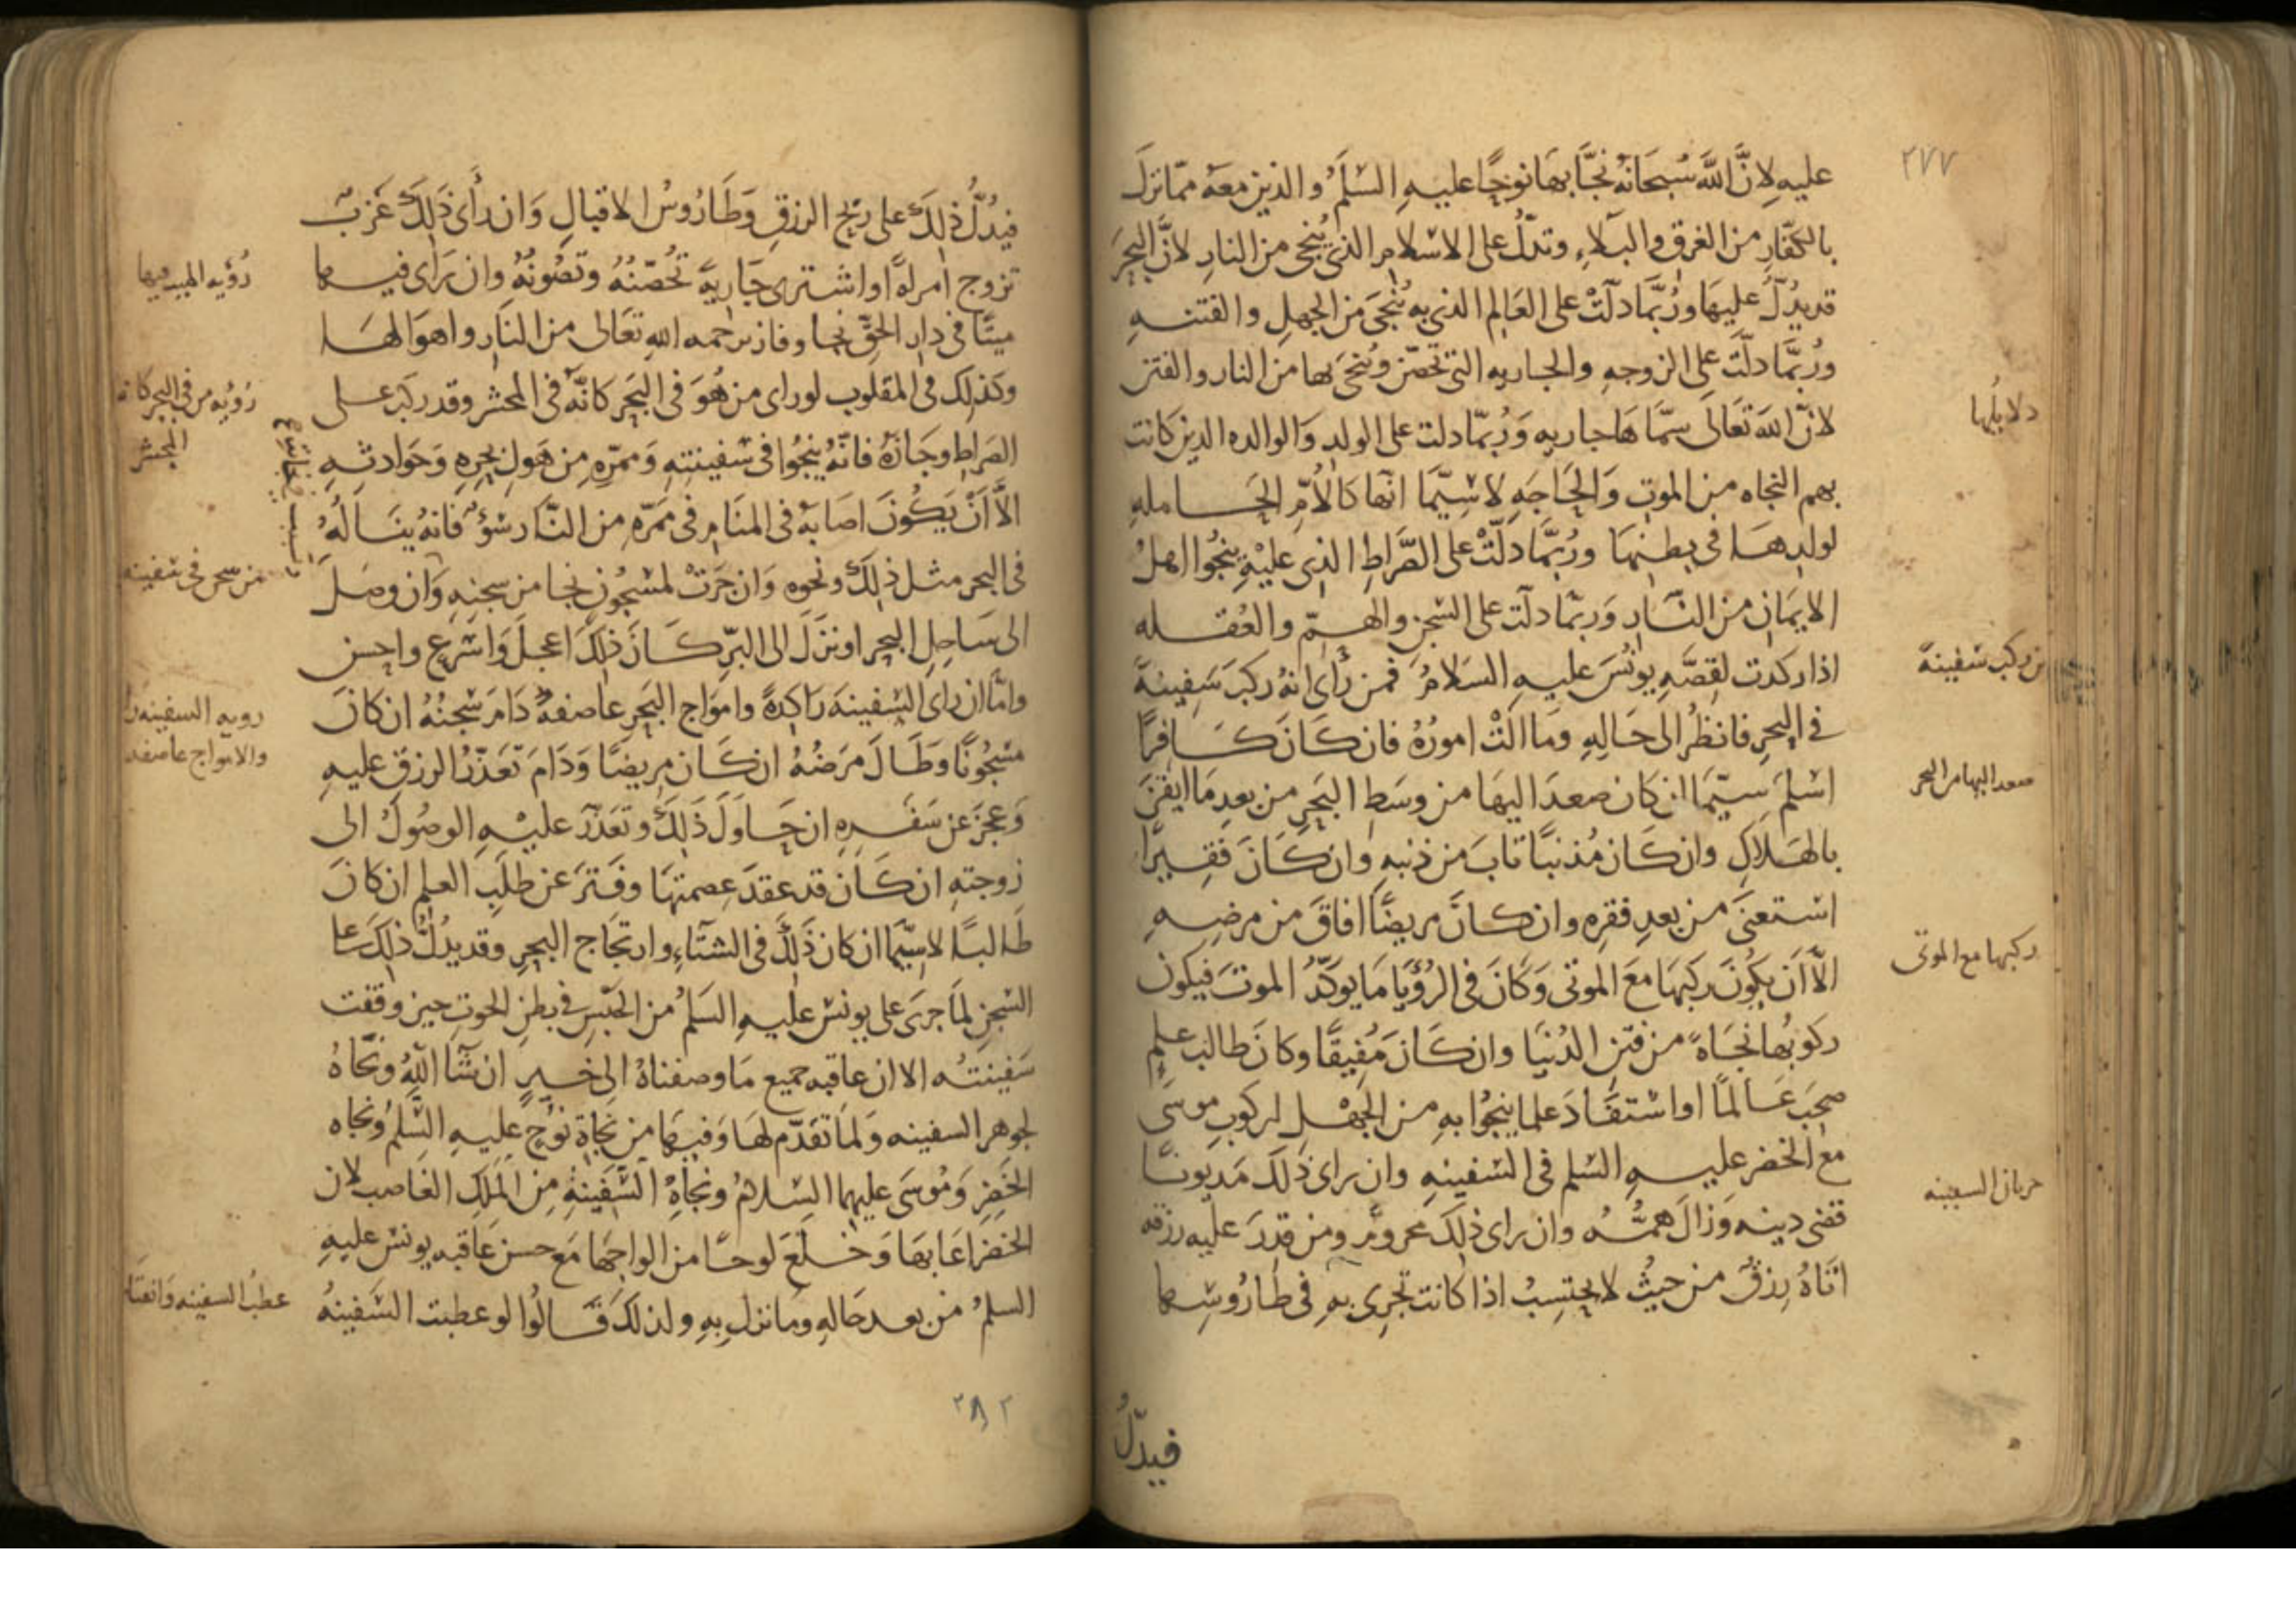 ٢٧٧
عليه لانَّ اللَّهَ سُبحَانهُ نجَّا بهَا نوحًا عليهِ السّلمُ والذين معهُ ممّا نزلَ
بالكفّارِ من الغرقِ والبلاءِ وتدلُّ على الاسلامِ الذي يُنجى من النارِ لانَّ البحرَ
قد يدُلُّ عليهَا ورُبَّمَا دلّتْ على العَالِم الذي به يُنجَى مَن الجهلِ والفتنهِ
ورُبَّمَا دلّتَ على الزوجهِ والجاريه التي تحصّن ويُنجَى بها من النار والفتن
دلايلُها
لانّ اللهَ تعَالى سمّاهَا جاريه وَرُبّما دلت على الولدِ وَالوالده الذين كانت
بهم النجاه من الموتِ وَالحَاجَهِ لا سِيَّمَا انّها كالأمّ الحَاملهِ
لولدِهَا في بطنهَا ورُبَّمَا دَلّتْ على الصّراطِ الذي عليْهِ ينجُوا اهلُ
الايمَانِ من النّارِ وَربّمَا دلّت على السّجنِ والهمّ والعُقله
من ركب سفينهً
اذا ركدت لقِصَّهِ يونُسَ عليهِ السَلامُ فمن رأى انهُ ركبَ سَفينهً
في البحرِ فانظُر الى حَالِهِ ومَا الَتْ امورُهُ فان كَانَ كَافرًا
صعد اليها من البحر
اسْلمَ سيّمَا ان كان صعدَ اليهَا من وسَطِ البَحرِ من بعدِ مَا ايقنَ
بالهَلاكِ وان كَان مُذنبًا تابَ من ذنبهِ وان كَانَ فَقِيرًا
استغنىَ من بعدِ فقرِه وان كانَ مريضًا افاقَ من مرضِهِ
ركبها مع الموتى
الاّ انَ يكُونَ ركبَهَا مَعَ الموتى وَكَانَ في الرُؤيَا مَا يوكدُّ الموتَ فيكون
ركوبُها نجَاةً من فتنِ الدُنيَا وان كَانَ مُفيقًا وكانَ طالبَ علمٍ
صحِبَ عَالمًا او استفَادَ علما ينجُوا بهِ من الجَهْلِ لركوبِ موسَى
معَ الخضر عليهِ السّلم في السّفينهِ وان راى ذلكَ مَديونًا
جريان السفينه
قضى دينه وَزالَ همُّهُ وان راى ذلِكَ محرومٌ ومن قدرَ عليه رزقه
اتَاهُ رِزقٌ من حيثُ لا يحتسِبُ اذا كانت تجرِى بهِ في طارُوسِها
فيدلُّ
فيدُلُّ ذلِكَ على ريْحِ الرزقِ وَطَارُوسُ الاقبالِ وَان رأى ذلِكَ عَزبٌ
رُؤيه الميت فيها
تزوج امراهً او اشترى جَاريهً تُحصّنُهُ وتصُونُهُ وان رَاى فيها
ميتًا في دارِ الحقّ نجا وفاز برحمه اللهِ تعَالى من النارِ واهوَالهَا
رُؤيه من في البحر كانه
المحشر
وكذلِك في المقلوب لو راى من هُوَ في البحَر كانَّهُ في المحشرِ وقد ركبَ على
الصرَاطِ وجَازَهُ فانّهُ ينجُوا في سَفينتهِ وَممرّهِ من هَولِ بحرِهِ وَحَوادثهِ
الاَّ أنْ يَكُونَ اصَابهُ في المنَامِ في مَمَرّهِ من النّارِ سُوْءٌ فانهُ ينَالُهُ
من سجن في سفينه
في البحرِ مثلَ ذلِكَ ونحوه وَان جَرَتْ لمسْجُونٍ نجَا من سجنِهِ وَان وصَلَ
الى سَاحِلِ البحرِ او نزَلَ الى البرّ كَانَ ذلِكَ اعجلَ وَاسْرع واحسن
رويه السفينه
والامواج عاصفه
وامّا ان راى السّفينهَ رَاكِدةً وامَواج البَحرِ عاصفهٌ دَامَ سَجنُهُ ان كانَ
مسْجُونًا وطَالَ مَرَضُهُ ان كَان مريضًا وَدَامَ تعَذّرُ الرزق عليهِ
وَعجَزَ عن سَفَرهِ ان حَاولَ ذلِكَ وتعَذّرَ عليْهِ الوصُولُ الى
زوجتهِ ان كَان قد عقدَ عِصمتهَا وفَتَرَ عن طلَبِ العِلم ان كانَ
طَالبًا لاسيّمَا ان كان ذَلِكَ في الشتَاءِ وارتجَاج البحرِ وقد يدُلّ ذلِكَ على
السّجنِ لمَا جرَى على يونسَ عليهِ السَلمُ من الحَبْسِ في بطنِ الحوتِ حين وقفت
سَفينتُه الا ان عاقِبه جميع مَا وصفناهُ الى خَيرٍ ان شا اللهُ ونجَاهُ
لجوهر السفينه وَلمَا تقدّم لهَا وَفيهَا من نجَاةِ نوُحٍ عليهِ السّلمُ ونجَاه
الخضرِ وَمُوسَى عليهما السّلامُ ونجَاهِ السّفينهِ مِن الملَكِ الغاصِب لان
الخضرَ اعَابهَا وَخلَعَ لوحًا من الواحِهَا مَع حسن عَاقبه يونس عليهِ
عطبُ السفينه وانفتَا
السلمُ من بعدِ حَالهِ ومَا نزلَ بهِ ولذلكَ قالُوا لو عطبت السّفينهُ
٢٨٢